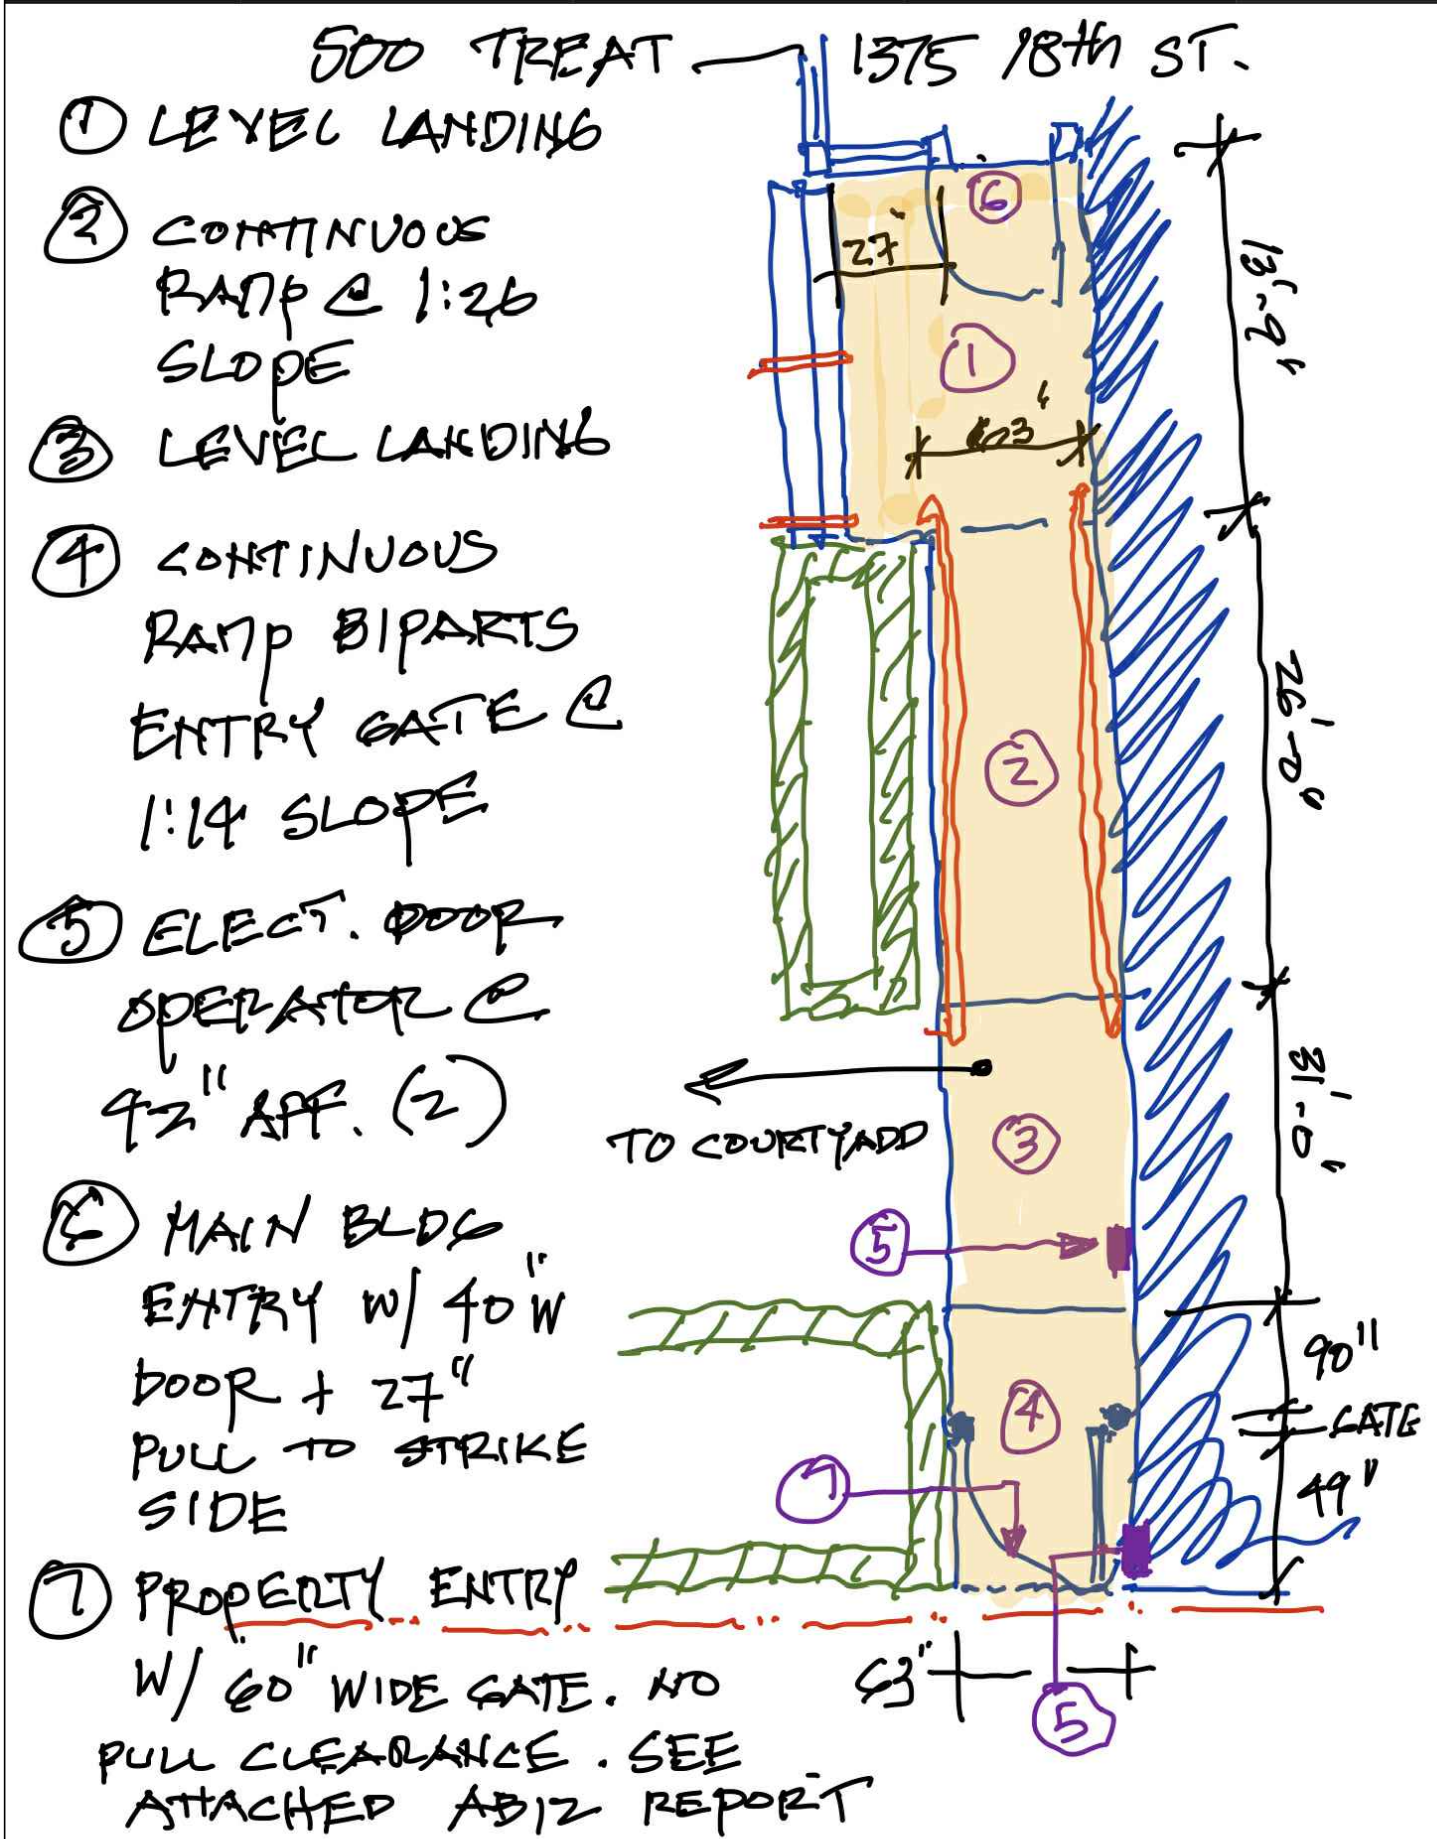 500 TREAT
1375 18th ST.
① LEVEL LANDING
② CONTINUOUS
RAMP @ 1:26
SLOPE
③ LEVEL LANDING
④ CONTINUOUS
RAMP BIPARTS
ENTRY GATE @
1:14 SLOPE
⑤ ELECT. DOOR
OPERATOR @
42" AFF. (2)
⑥ MAIN BLDG
ENTRY W/ 40"W
DOOR + 27"
PULL TO STRIKE
SIDE
⑦ PROPERTY ENTRY
W/ 60" WIDE GATE. NO
PULL CLEARANCE. SEE
ATTACHED AB12 REPORT
⑥
27"
①
②
26'-0"
31'-0"
TO COURTYADD
③
⑤
90"
④
GATE
⑦
49"
63"
⑤